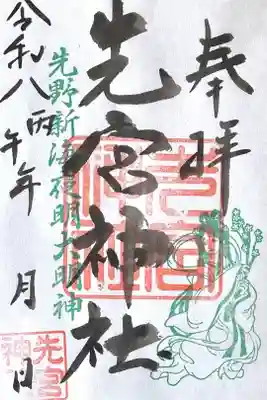 奉拝
先宮神社
先野新海夜明大明神
令和八丙午年 月 日
先宮
神